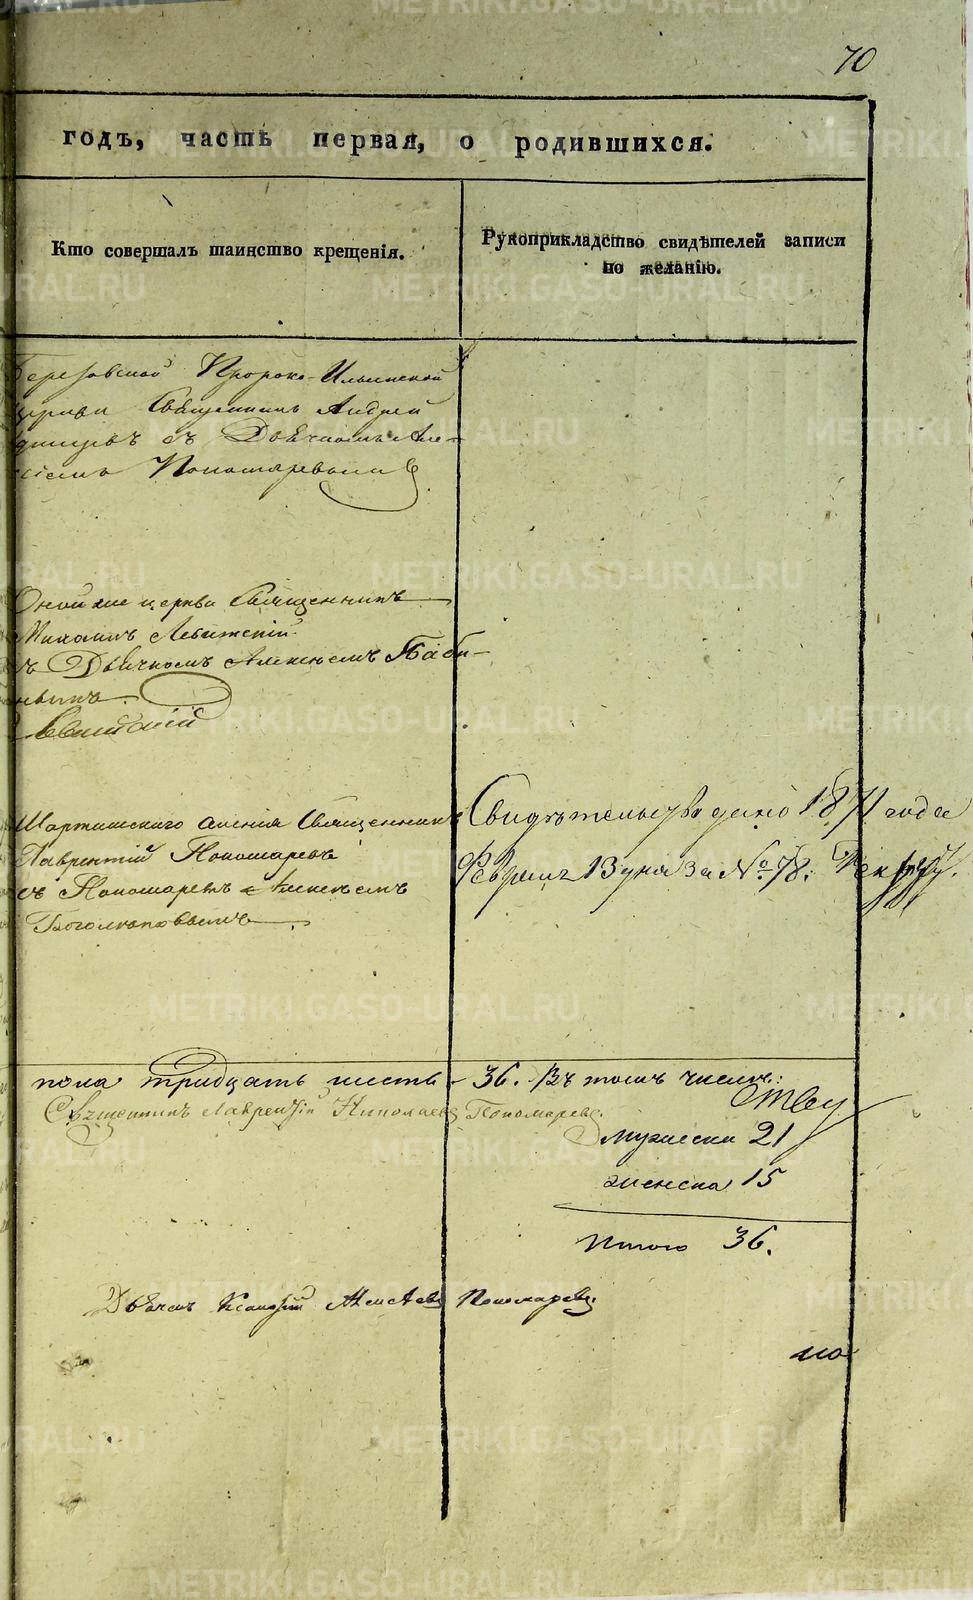 70
годъ, часть первая, о родившихся.
Кто совершалъ таинство крещенія.
Рукоприкладство свидѣтелей записи
по желанію.
Березовской Пророко-Ильинской
церкви Священникъ Андрей
съ Дьячкомъ Але-
Пономаревымъ
Оной же церкви Священникъ
Михаилъ Левитскій
съ Дьячкомъ Алексѣемъ Баби-
новымъ
Левитскій
Шарташскаго селенія Священникъ
Лаврентій Пономаревъ
съ Пономаремъ Алексѣемъ
Боголюповымъ
Свидѣтельство дано 1871 года
Февраля 13 дня за № 78.
пола тридцать шесть - 36. Въ томъ числѣ:
Священникъ Лаврентій Николаевъ Пономаревъ.
мужеска 21
женска 15
Итого 36.
Дьячекъ Алексѣевъ Пономаревъ
METRIKI.GASO-URAL.RU